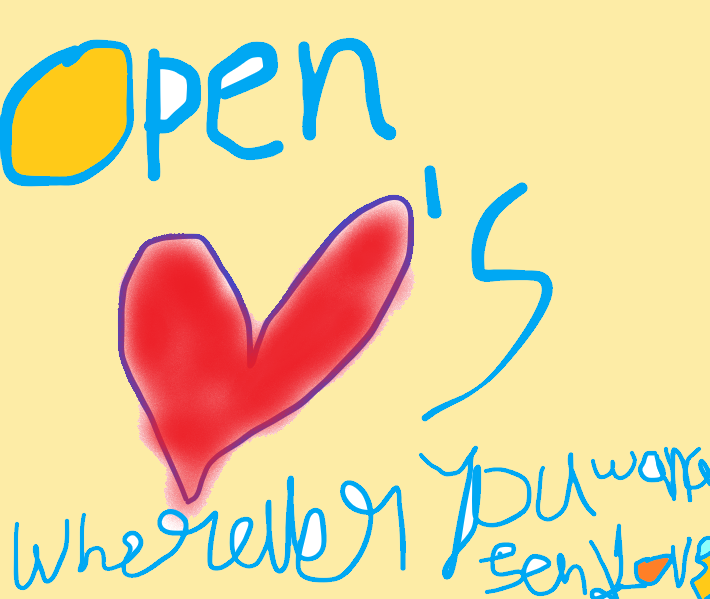 Open
's
wherever you want
send love